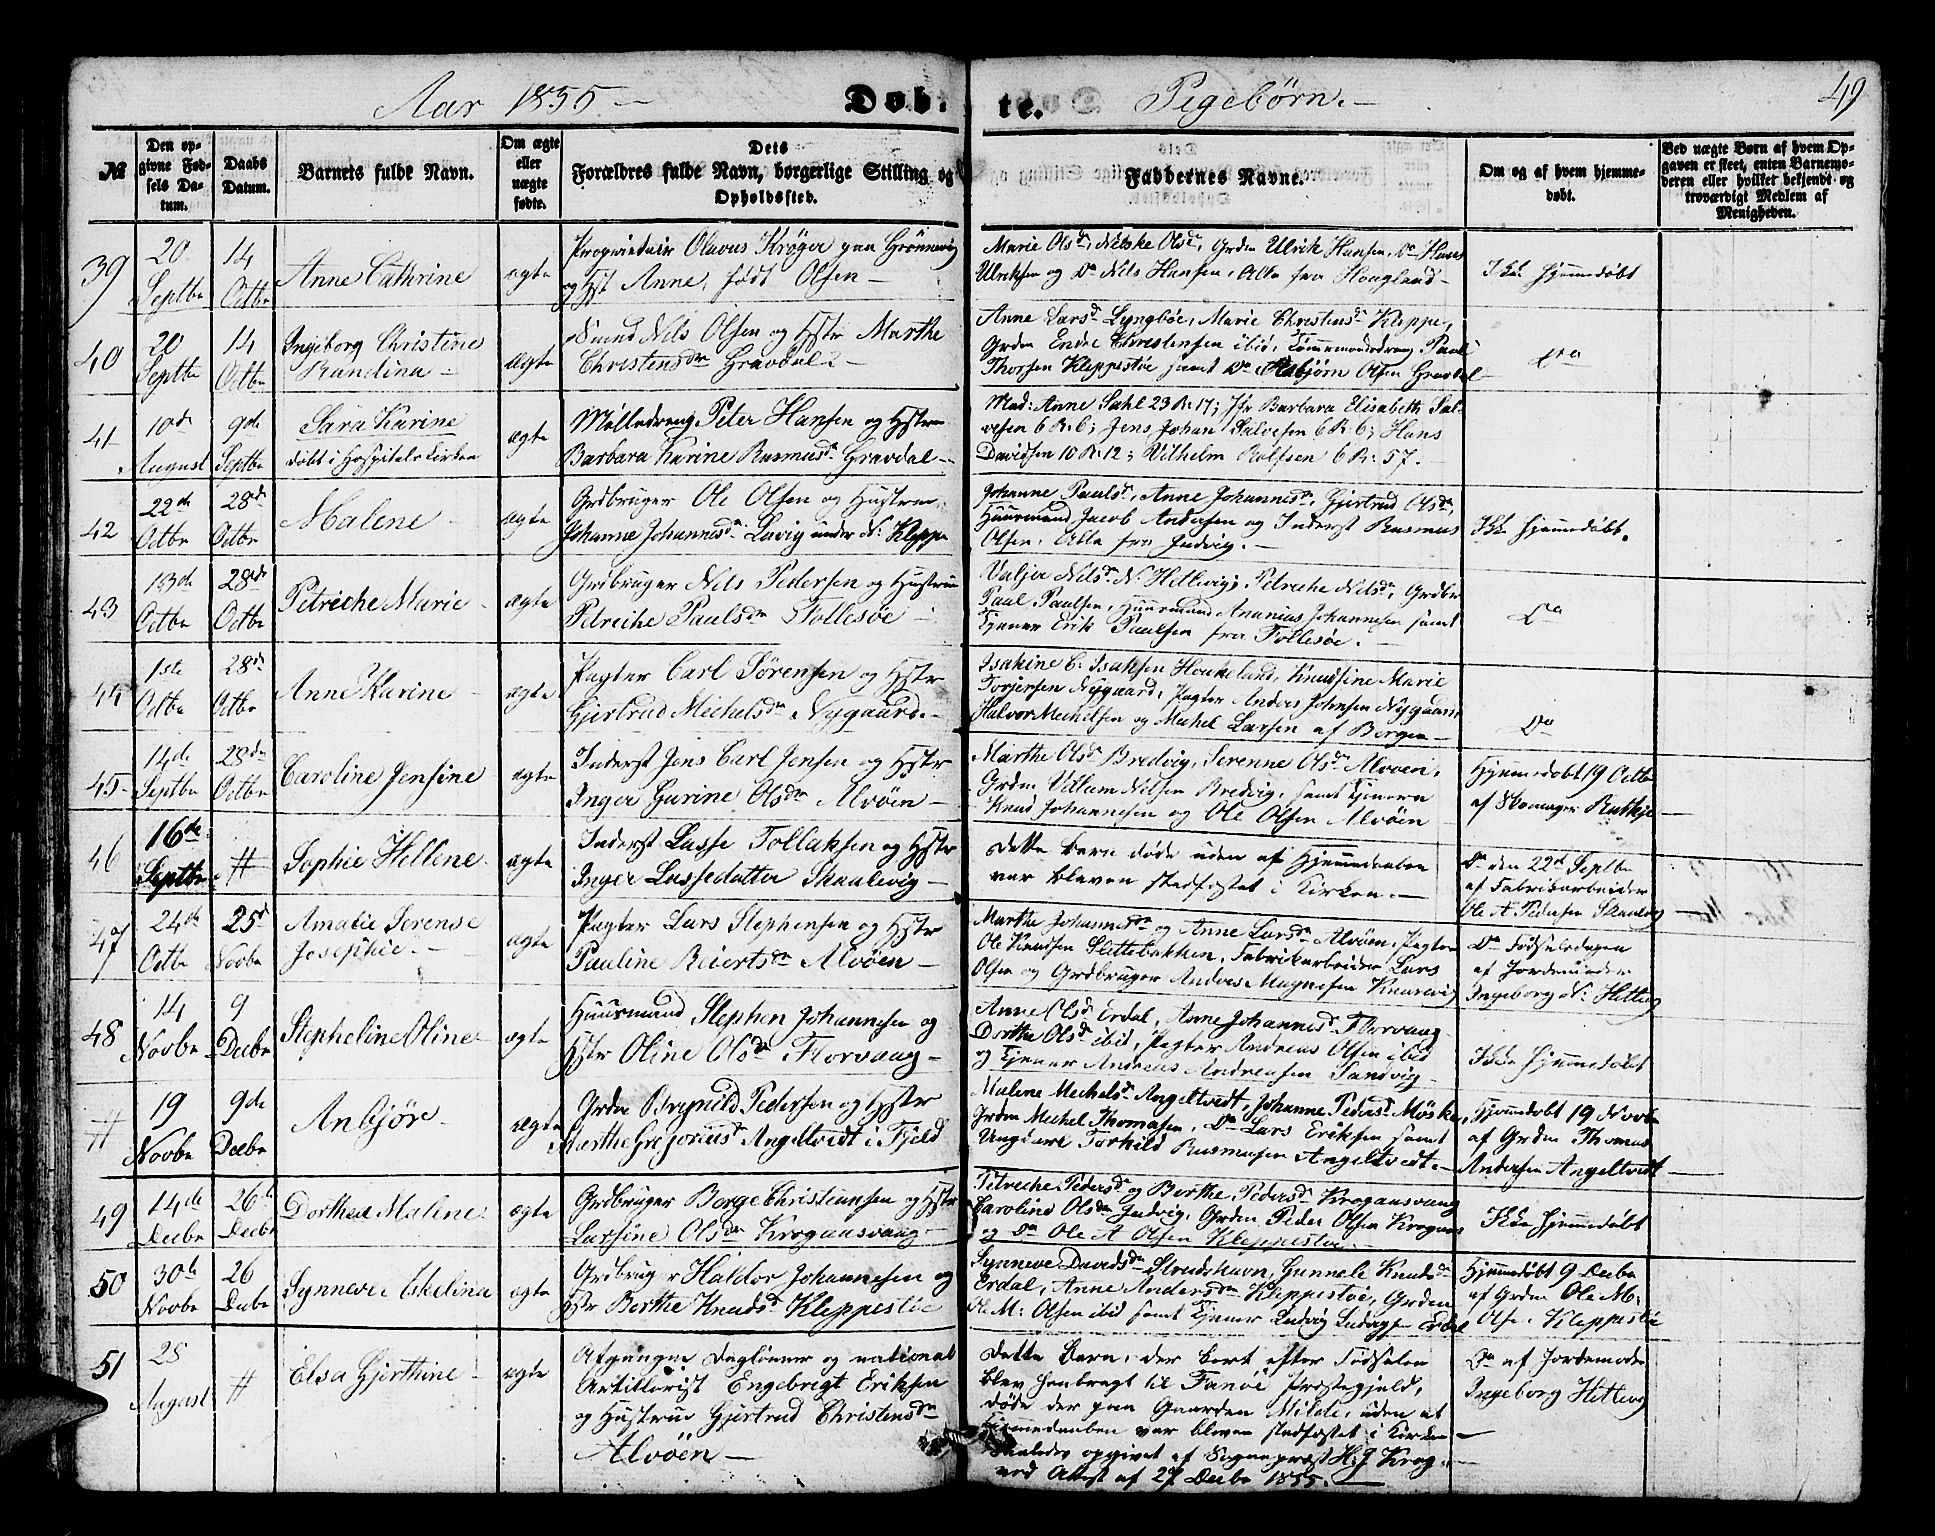 Aar 1855 — Døb-te. Pigebørn. — 49
№
Den opgivne Fødsels Datum.
Daabs Datum.
Barnets fulde Navn.
Om ægte eller uægte fødte.
Dets Forældres fulde Navn, borgerlige Stilling og Opholdssted.
Faddernes Navne.
Om og af hvem hjemmedøbt.
Ved uægte Børn af hvem Opgaven er skeet, enten Barnemoderen eller hvilket bekjendt og troværdigt Medlem af Menigheden.
39
20 Septbr
14 Octbr
Anne Cathrine
ægte
Proprietair Olavus Krøger paa Grønnevig
og Hst Anne, født Olsen —
Marie Olsdr, Nilske Olsdr, Grdm Ulrik Hansen, Do Hans
Ulriksen og Do Nils Hansen, Alle fra Hougland —
Ikke hjemmedøbt
40
20 Septbr
14 Octbr
Ingeborg Christine
Randina —
ægte
Nils Olsen og Hstr Marthe
Christensdr Gravdal —
Anne Larsdr Lyngbøe, Marie Christensdr Kleppe,
Grdm Endre Christensen ibid, Tømmermandsdreng Paul
Thorsen Kleppestøe samt Do Asbjørn Olsen Gravdal
Do
41
10de August
9de Septbr
Sara Karine
døbt i Hospitalskirken
ægte
Mølledreng Peter Hansen og Hstru
Barbara Karine Rasmusdr Gravdal —
Mad: Anne Dahl 23 R: 17; Jfr Barbara Elisabeth Sal-
vesen 6 R: 6; Jens Johan Salvesen 6 R: 6; Hans
Davidsen 10 R: 12; Vilhelm Rolfsen 6 R: 57. —
42
22de Octbr
28de Octbr
Malene
ægte
Grdbruger Ole Olsen og Hustrue
Johanne Johannesdr Lavig under N: Kleppe
Johanne Paulsdr, Anne Johannesdr, Gjertrud Olsdr,
Huusmand Jacob Andersen og Inderst Rasmus
Olsen, Alle fra Judvig. —
Ikke hjemmedøbt.
43
13de Octbr
28de Octbr
Petriche Marie
ægte
Grdbruger Nils Pedersen og Hustrue
Petriche Paulsdr Follesøe —
Valjer Nilsdr N: Hetlevig; Petriche Nilsdr, Grdbr
Paul Paulsen, Huusmand Ananias Johannesen samt
Tjener Erik Paulsen fra Follesøe. —
Do
44
1ste Octbr
28de Octbr
Anne Karine
ægte
Pagter Carl Sørensen og Hstr
Gjertrud Michelsdr Nygaard. —
Isakine C. Isaksen Houkeland, Knudsine Marie
Torjersen Nygaard, Pagter Anders Johnsen Nygaard,
Halvor Michelsen og Michel Larsen af Bergen —
Do
45
14de Septbr
28de Octbr
Caroline Jensine
ægte
Inderst Jens Carl Jensen og Hstr
Inger Gurine Olsdr Alvøen —
Marthe Olsdr Bredvig, Serenne Olsdr Alvøen,
Grdm Villum Nilsen Bredvig, samt Tjenere
Knud Johannesen og Ole Olsen Alvøen
Hjemmedøbt 19 Octbr
af Skomager Ruthje —
46
16de Septbr
#
Sophie Hellene
ægte
Inderst Lasse Tollaksen og Hstr
Inger Lassedatter Skaalevig —
Dette Barn døde uden at Hjemmedaaben
var bleven stadfæstet i Kirken. —
Do den 22d Septbr
af Fabrikarbeider
Ole A. Pedersen Skaalevig
47
24de Octbr
25d Novbr
Amalie Serense
Josephie. —
ægte
Pagter Lars Stephensen og Hstr
Pauline Reiertsdr Alvøen —
Marthe Johannesdr og Anne Larsdr Alvøen, Pagter
Ole Knudsen Slettebakken, Fabrikarbeider Lars
Olsen og Grdbruger Anders Magnesen Knarrevig
Do Fødselsdagen
af Jordemoder
Ingeborg N: Hetlevig
48
14 Novbr
9 Decbr
Stepheline Oline
ægte
Huusmand Stephen Johannesen og
Hstr Oline Olsdr Florvaag —
Anne Olsdr Erdal, Anne Johannesdr Florvaag
Dorthe Olsdr ibid, Pagter Andreas Olsen ibid
og Tjener Andreas Andreasen Sandvig —
Ikke hjemmedøbt
#
19 Novbr
9de Decbr
Anbjør
ægte
Grdm Brynild Pedersen og Hstr
Marthe Gregoriusdr Angeltvedt i Fjeld
Malene Michelsdr Angeltvedt, Johanne Pedersdr Møske,
Grdm Michel Thomasen, Do Lars Eriksen samt
Ungkarl Torkild Rasmusen Angeltvedt. —
Hjemmedøbt 19 Novbr
af Grdm Thomas
Andersen Angeltvedt
49
14de Decbr
26de Decbr
Dorthea Malene
ægte
Grdbruger Børge Christiansen og Hstr
Larsine Olsdr Krogaasvaag —
Petriche Pedersdr og Berthe Pedersdr Krogaasvaag
Caroline Olsdr Judvig, Grdm Peder Olsen Krogaas
og Do Ole A Olsen Kleppestøe —
Ikke hjemmedøbt
50
30te Novbr
26 Decbr
Synneve Askelina
ægte
Grdbruger Haldor Johannesen og
Hstr Berthe Knudsdr Kleppestøe
Synneve Davidsdr Strudshavn, Gunnele Knudsdr
Erdal, Anne Andersdr Kleppestøe, Grdm
Ole M: Olsen ibid samt Tjener Ludvig Ludvigsen Erdal
Hjemmedøbt 9 Decbr
af Grdm Ole M:
Olsen Kleppestøe
51
28 August
#
Elsa Gjerthine
ægte
Afgangne Dagløner og national
Artillerist Engebrigt Eriksen
og Hustrue Gjertrud Christensdr
Alvøen —
Dette Barn, der kort efter Fødselen
blev henbragt til Fanøe Præstegjeld,
døde der paa Gaarden Milde, uden at
Hjemmedaaben var bleven stadfæstet i Kirken —
Saaledes opgivet af Sognepræst H. J Krog
ved Attest af 27 Decbr 1855. —
Do af Jordemoder
Ingeborg Hetlevig